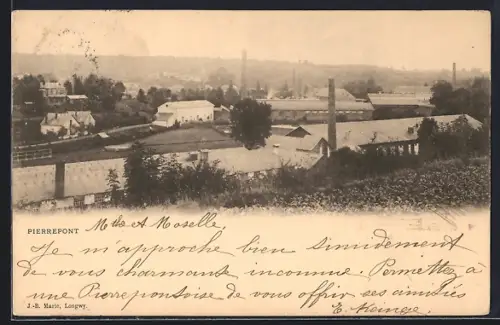 PIERREFONT
Mlle A Moselle,
Je m'approche bien timidement
de vous charmante inconnue. Permettez à
une Pierrepontoise de vous offrir ses amitiés
J.-B. Marie, Longwy.
E.